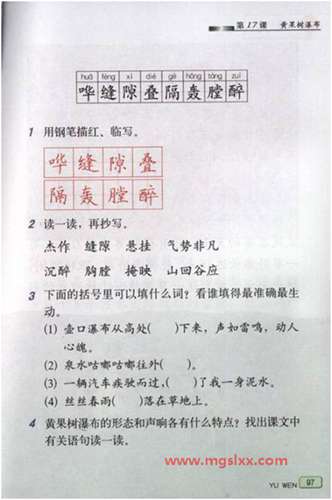 第17课 黄果树瀑布
huā féng xì dié gé hōng táng zuì
哗缝隙叠隔轰膛醉
1 用钢笔描红、临写。
哗缝隙叠
隔轰膛醉
2 读一读，再抄写。
杰作 缝隙 悬挂 气势非凡
沉醉 胸膛 掩映 山回谷应
3 下面的括号里可以填什么词？看谁填得最准确最生
动。
(1) 壶口瀑布从高处( )下来，声如雷鸣，动人
心魄。
(2) 泉水咕嘟咕嘟往外( )。
(3) 一辆汽车疾驶而过，( )了我一身泥水。
(4) 丝丝春雨( )落在草地上。
4 黄果树瀑布的形态和声响各有什么特点？找出课文中
有关语句读一读。
www.mgslxx.com
YU WEN 97